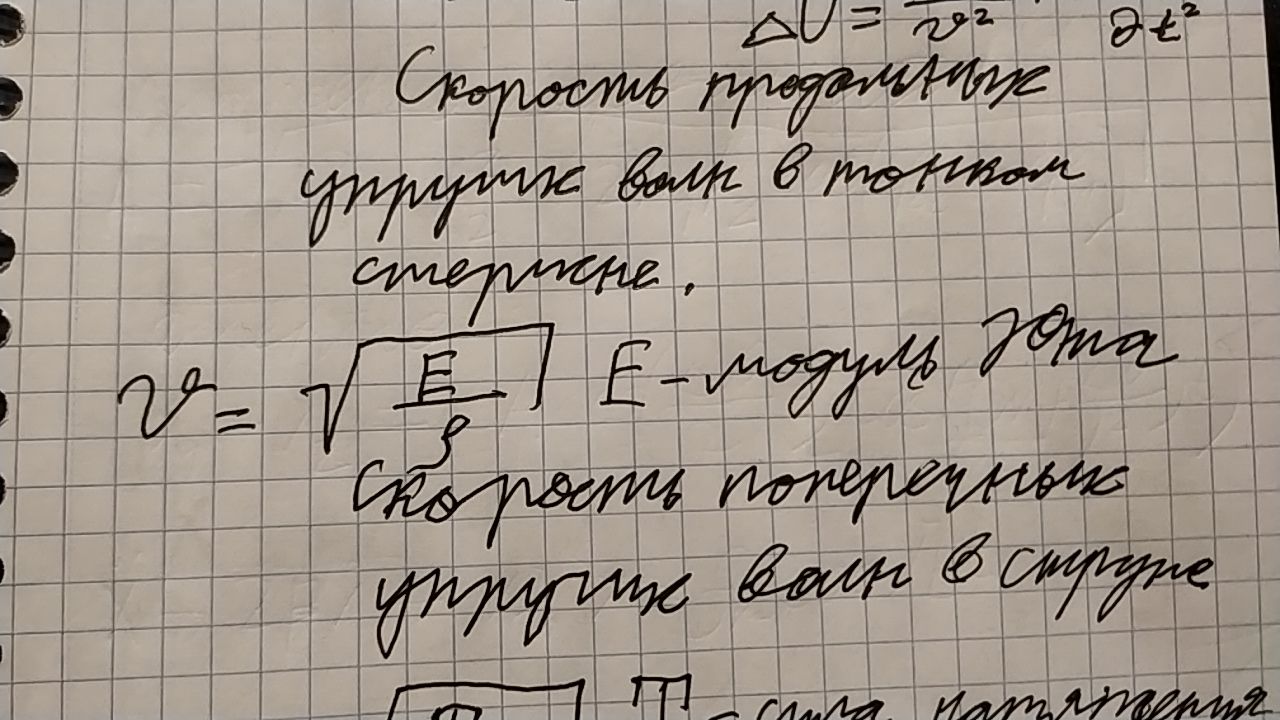 ΔU = v² ∂t²
Скорость продольных
упругих волн в тонком
стержне.
v = √(E/ρ) E – модуль Юнга
Скорость поперечных
упругих волн в струне
T – сила натяжения